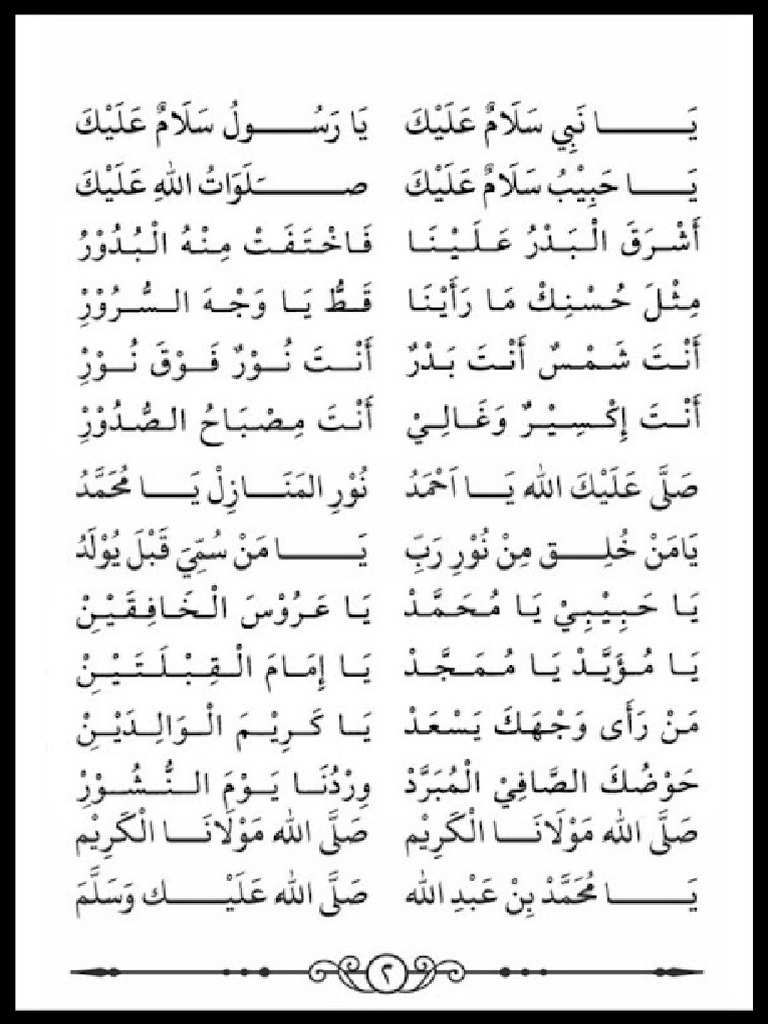 يَا نَبِي سَلَامٌ عَلَيْكَ يَا رَسُولُ سَلَامٌ عَلَيْكَ
يَا حَبِيْبُ سَلَامٌ عَلَيْكَ صَلَوَاتُ اللهِ عَلَيْكَ
أَشْرَقَ الْبَدْرُ عَلَيْنَا فَاخْتَفَتْ مِنْهُ الْبُدُوْرُ
مِثْلَ حُسْنِكْ مَا رَأَيْنَا قَطُّ يَا وَجْهَ السُّرُوْرْ
أَنْتَ شَمْسٌ أَنْتَ بَدْرٌ أَنْتَ نُوْرٌ فَوْقَ نُوْرْ
أَنْتَ إِكْسِيْرٌ وَغَالِيْ أَنْتَ مِصْبَاحُ الصُّدُوْرْ
صَلَّى عَلَيْكَ الله يَا اَحْمَدُ نُوْرِ المَنَازِلْ يَا مُحَمَّدُ
يَامَنْ خُلِق مِنْ نُوْرِ رَبِّ يَا مَنْ سُمِّيَ قَبْلَ يُوْلَدُ
يَا حَبِيْبِيْ يَا مُحَمَّدْ يَا عَرُوْسَ الْخَافِقَيْنِْ
يَا مُؤَيَّدْ يَا مُمَجَّدْ يَا إِمَامَ الْقِبْلَتَيْنِْ
مَنْ رَأَى وَجْهَكَ يَسْعَدْ يَا كَرِيْمَ الْوَالِدَيْنِْ
حَوْضُكَ الصَّافِيْ الْمُبَرَّدْ وِرْدُنَا يَوْمَ النُّشُوْرِْ
صَلَّى الله مَوْلَانَا الْكَرِيْم صَلَّى الله مَوْلَانَا الْكَرِيْم
يَا مُحَمَّدْ بِنْ عَبْدِ الله صَلَّى الله عَلَيْك وَسَلَّمَ
٢